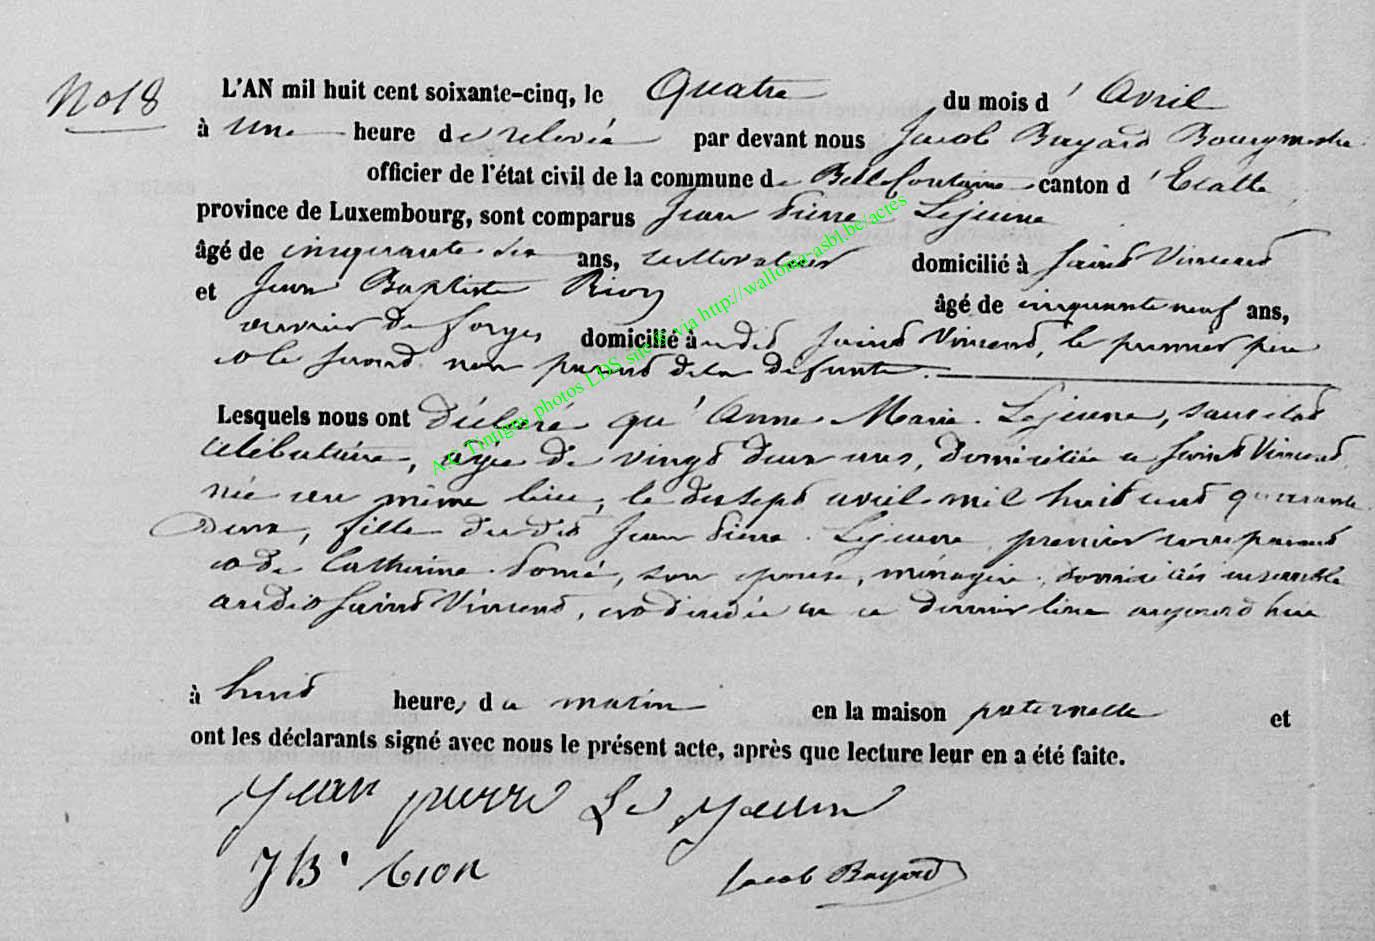 No 18
L'AN mil huit cent soixante-cinq, le Quatre du mois d'Avril
à une heure de relevée par devant nous Jacob Bayard Bourgmestre
officier de l'état civil de la commune de Bellefontaine canton d'Etalle
province de Luxembourg, sont comparus Jean Pierre Lejeune
âgé de cinquante six ans, cultivateur domicilié à Saint Vincent
et Jean Baptiste Rion âgé de cinquante neuf ans,
ouvrier de forges domicilié à udit Saint Vincent, le premier père
et le second non parent de la défunte.
Lesquels nous ont déclaré qu'Anne Marie Lejeune, sans état
célibataire, agée de vingt deux ans, domiciliée à Saint Vincent,
née au même lieu, le dix sept avril mil huit cent quarante
deux, fille du dit Jean Pierre Lejeune premier comparant
et de Catherine Pomé, son épouse, ménagère, domiciliés ensemble
audit Saint Vincent, est décédée en ce dernier lieu aujourd'hui
à huit heures du matin en la maison paternelle et
ont les déclarants signé avec nous le présent acte, après que lecture leur en a été faite.
Jean pierre Le Jeune
J B' Rion Jacob Bayard
A.E Tintigny photos LDS, site & via http://wallonia-asbl.be/actes